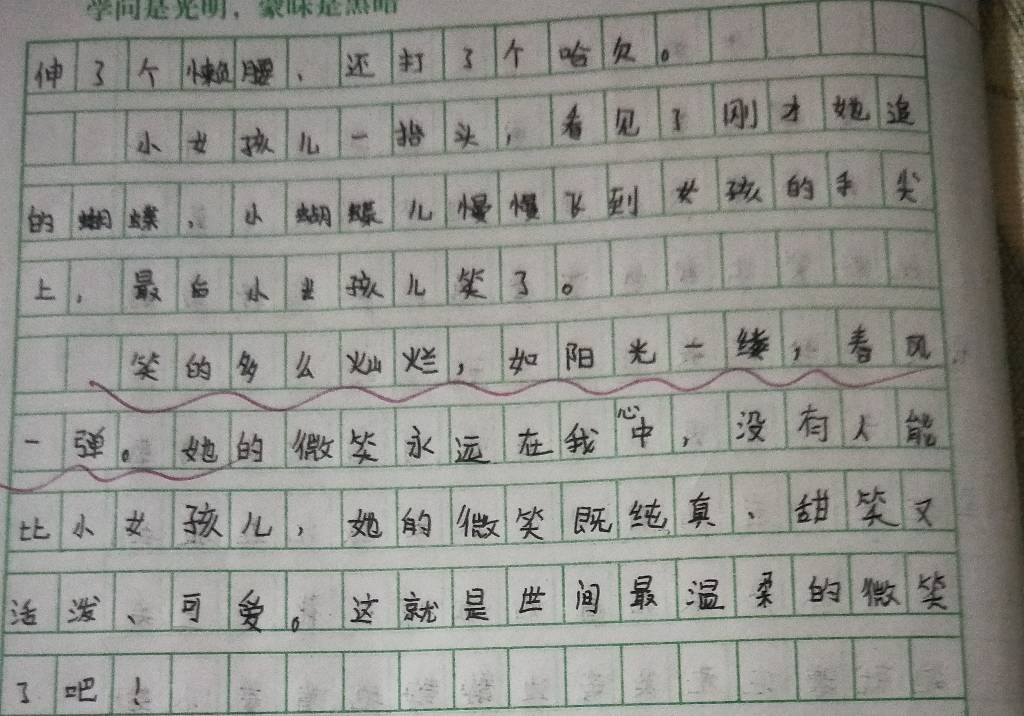 学问是光明，蒙昧是黑暗
伸了个懒腰、还打了个哈欠。
小女孩儿一抬头，看见了刚才她追
的蝴蝶，小蝴蝶儿慢慢飞到女孩的手尖
上，最后小女孩儿笑了。
笑的多么灿烂，如阳光一缕，春风
一弹。她的微笑永远在我心中，没有人能
比小女孩儿，她的微笑既纯真、甜笑又
活泼、可爱。这就是世间最温柔的微笑
了吧！